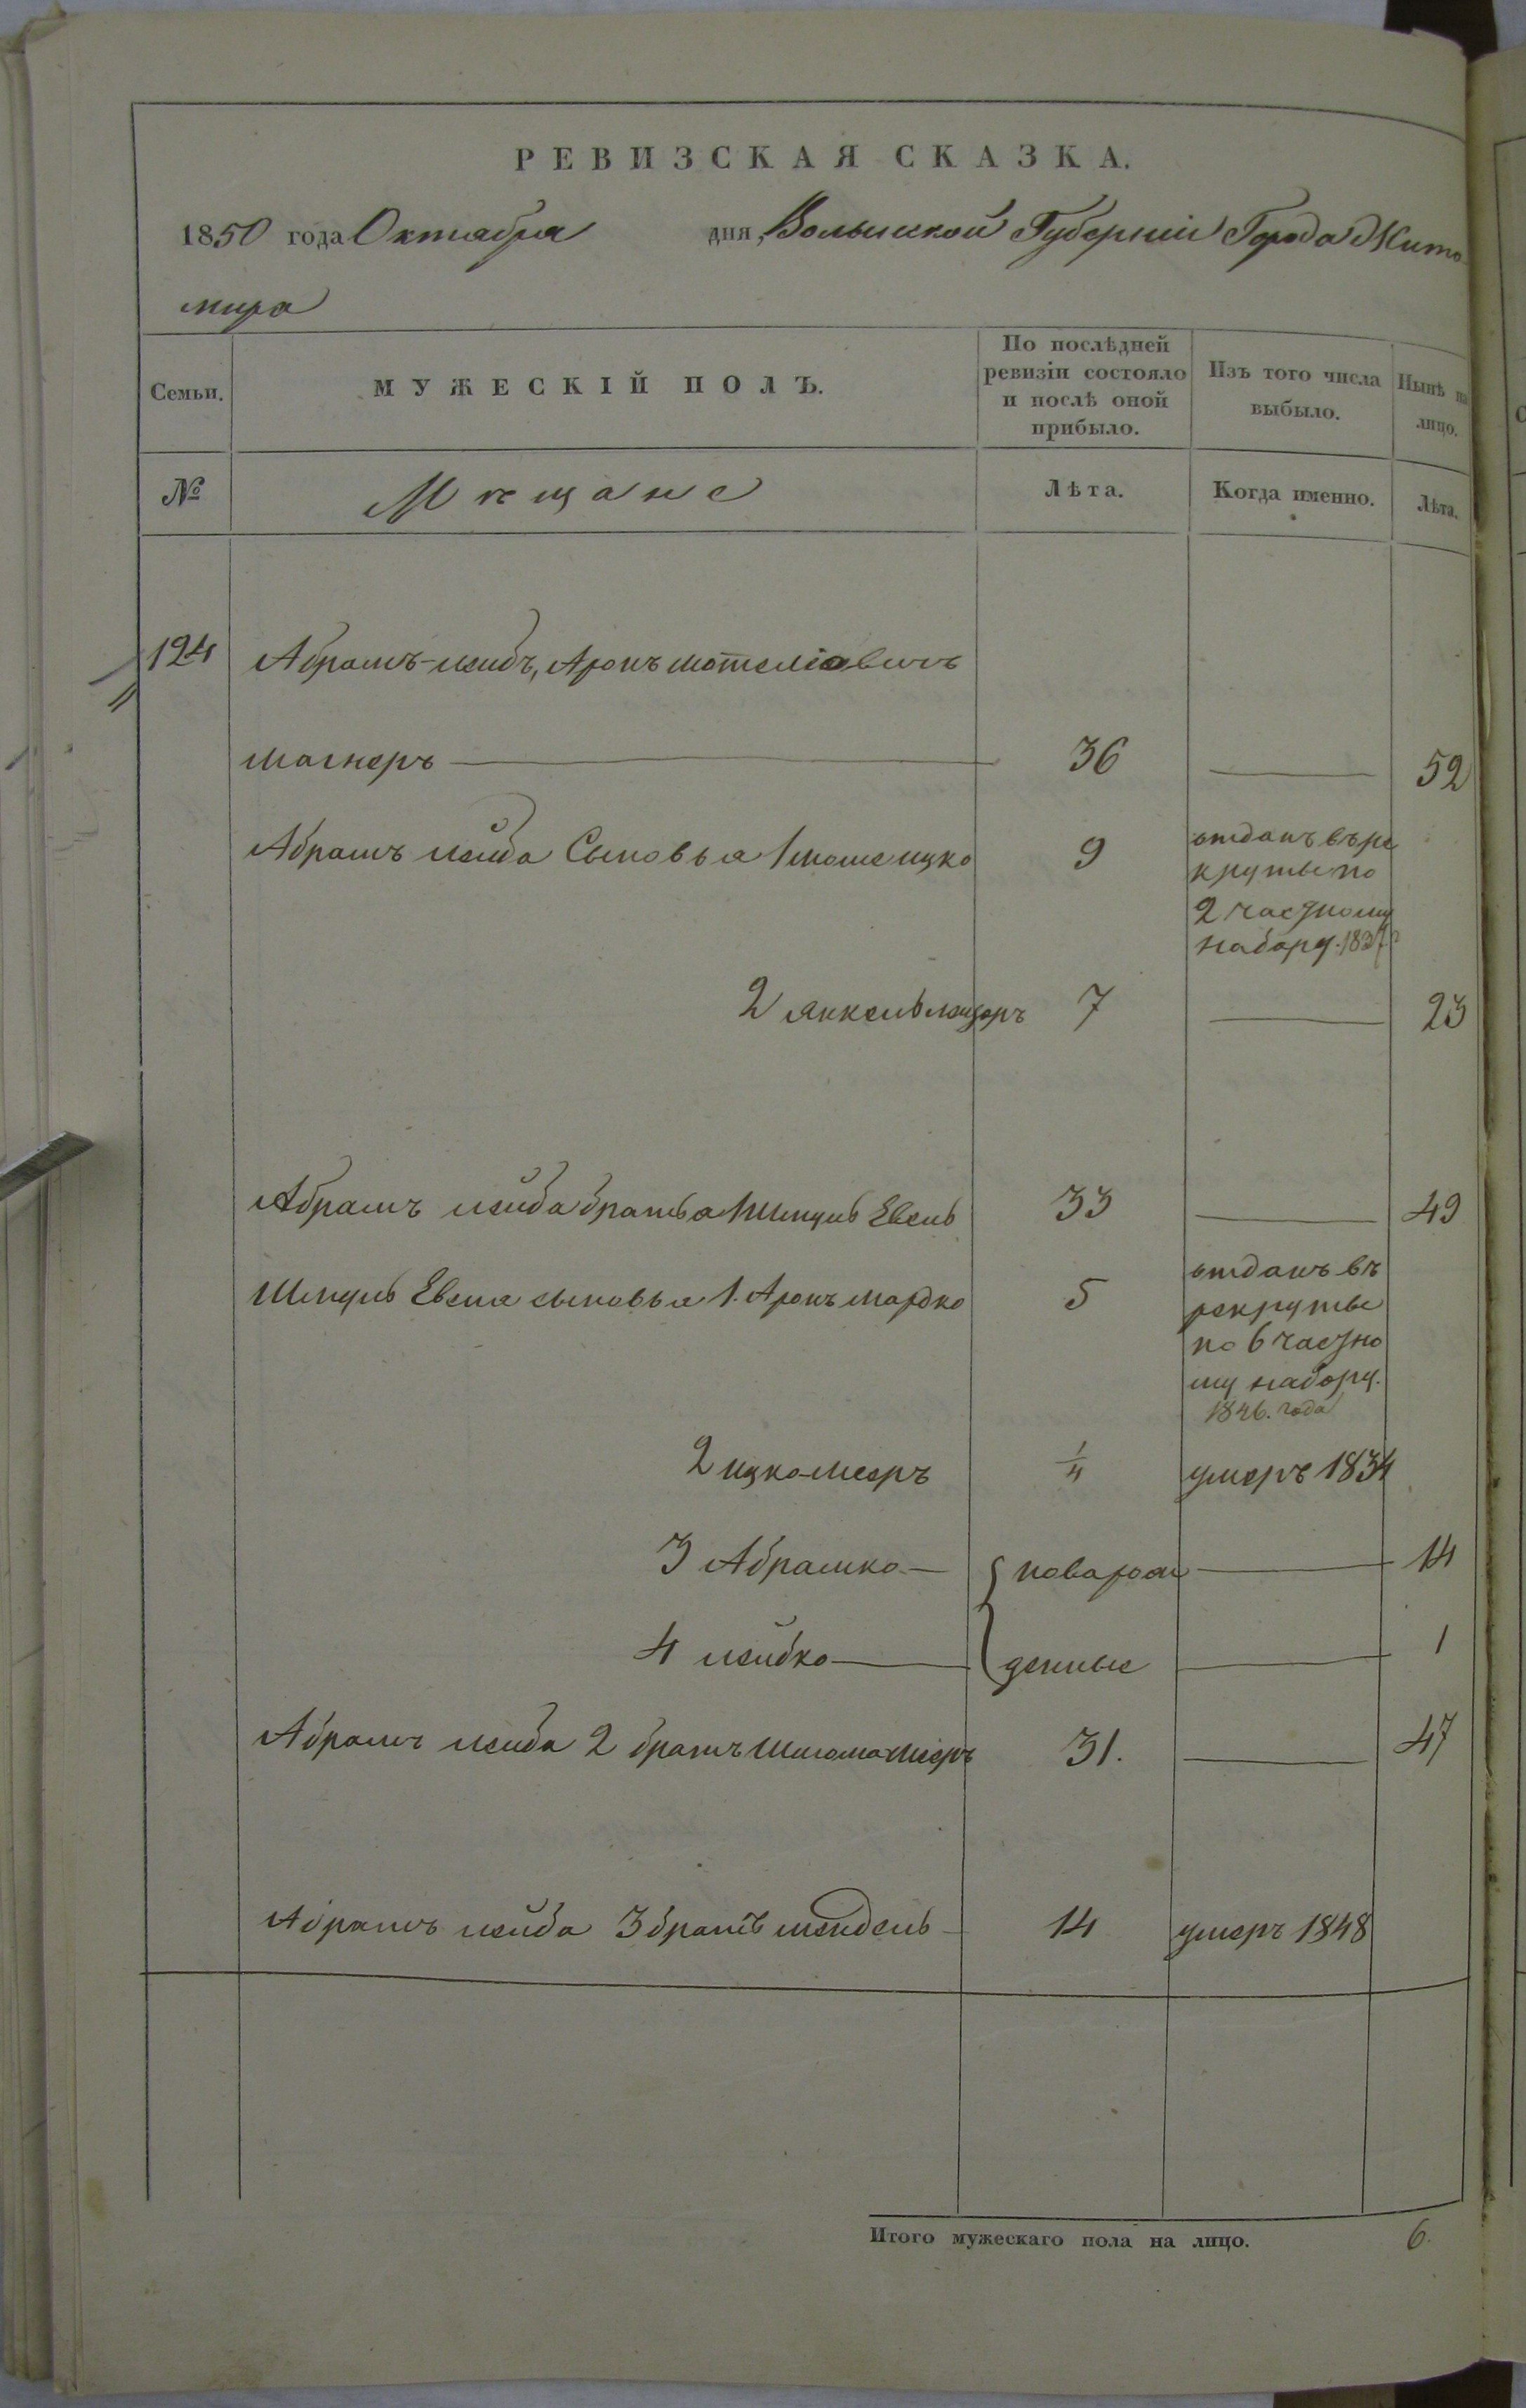 РЕВИЗСКАЯ СКАЗКА.
1850 года Октября дня, Волынской Губернии Города Жито
мира
Семьи. МУЖЕСКІЙ ПОЛЪ. По послѣдней ревизіи состояло и послѣ оной прибыло. Изъ того числа выбыло. Нынѣ на лицо.
№ Мѣщане Лѣта. Когда именно. Лѣта.
124 Абрамъ-лейбъ, Аронъ мотеліовичь
Магнеръ 36 52
Абрамъ лейба Сыновья 1 мошеицко 9 отданъ въ ре
круты по
2 частному
набору. 1837
2 янкельлейзоръ 7 23
Абрамъ лейба братья 1 Шмуль Евель 33 49
Шмуль Евеля сыновья 1. Аронъ мардко 5 отданъ въ
рекруты
по 6 частно
му набору.
1846. года
2 ицко-мееръ 1/4 умеръ 1834
3 Абрамко новарож 14
4 лейбко денные 1
Абрамъ лейба 2 братъ Шлемамееръ 31. 47
Абрамъ лейба 3 братъ мендель 14 умеръ 1848
Итого мужескаго пола на лицо. 6.